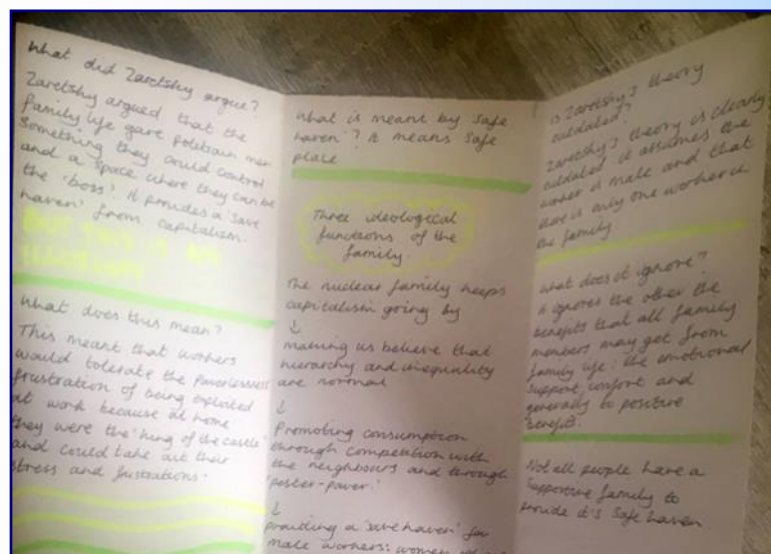 What did Zaretsky argue?
Zaretsky argued that the
family life gave men
something they could control
and a space where they can be
the 'boss'. It provides a 'save
haven' from capitalism.
BUT THIS IS AN
What does this mean?
This meant that workers
would tolerate the powerlessness
frustration of being exploited
at work because at home
they were the 'king of the castle'
and could take out their
stress and frustrations.
What is meant by safe
haven'? It means safe
place
Three ideological
functions of the
family.
The nuclear family keeps
capitalism going by
↓
making us believe that
hierarchy and inequality
are normal
↓
Promoting consumption
through competition with
the neighbours and through
'pester-power.'
↓
providing a 'save haven' for
male workers: women
Is Zaretsky's theory
outdated?
Zaretsky's theory is clearly
outdated it assumes the
worker is male and that
there is only one worker in
the family
What does it ignore?
It ignores the other the
benefits that all family
members may get from
family life: the emotional
support, comfort and
generally to positive
benefits.
Not all people have a
supportive family to
provide it's safe haven